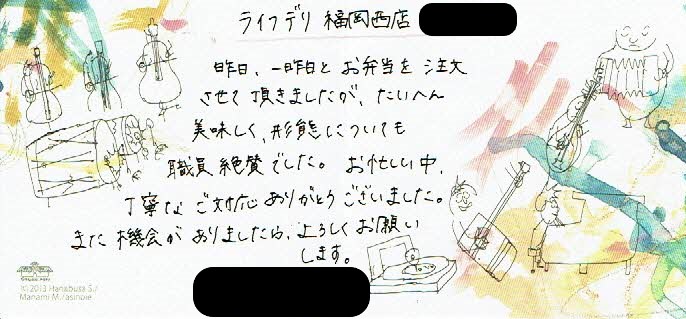 ライフデリ 福岡西店
昨日、一昨日とお弁当を注文
させて頂きましたが、たいへん
美味しく、形態についても
職員絶賛でした。お忙しい中、
丁寧なご対応ありがとうございました。
また機会がありましたら、よろしくお願い
します。
© 2013 Hanabusa S./